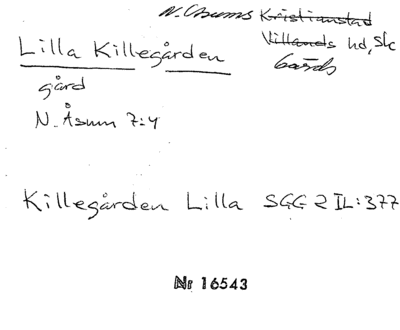 N. Åsums Kristianstad
Lilla Killegården Villands hd, Sk
gård Gärds
N. Åsum 7:4
Killegården Lilla SGG 2 IL:377
Nr 16543